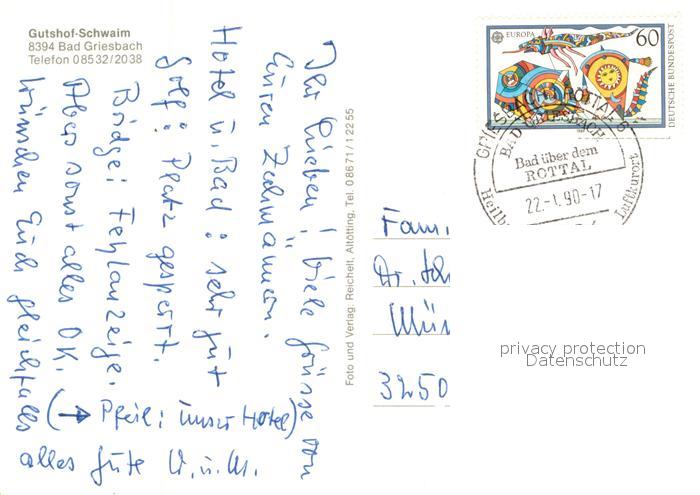 Gutshof-Schwaim
8394 Bad Griesbach
Telefon 08532/2038
Ihr Lieben! Viele Grüsse von
Euren Zuhmännern.
Hotel u. Bad: sehr gut
Golf: Platz gesperrt.
Bridge: Fehlanzeige.
Aber sonst alles OK.
Wünschen Euch gleichfalls
alles Gute U. u. M.
(→ Pfeil: unser Hotel)
Foto und Verlag: Reichelt, Altötting, Tel. 08671/12255
EUROPA
60
DEUTSCHE BUNDESPOST
GRIESBACH I ROTTAL
BAD GRIESBACH
Bad über dem
ROTTAL
22.-1.90-17
Heilb
Luftkurort
Fam.
Dr. Sch
Mün
3250
privacy protection
Datenschutz